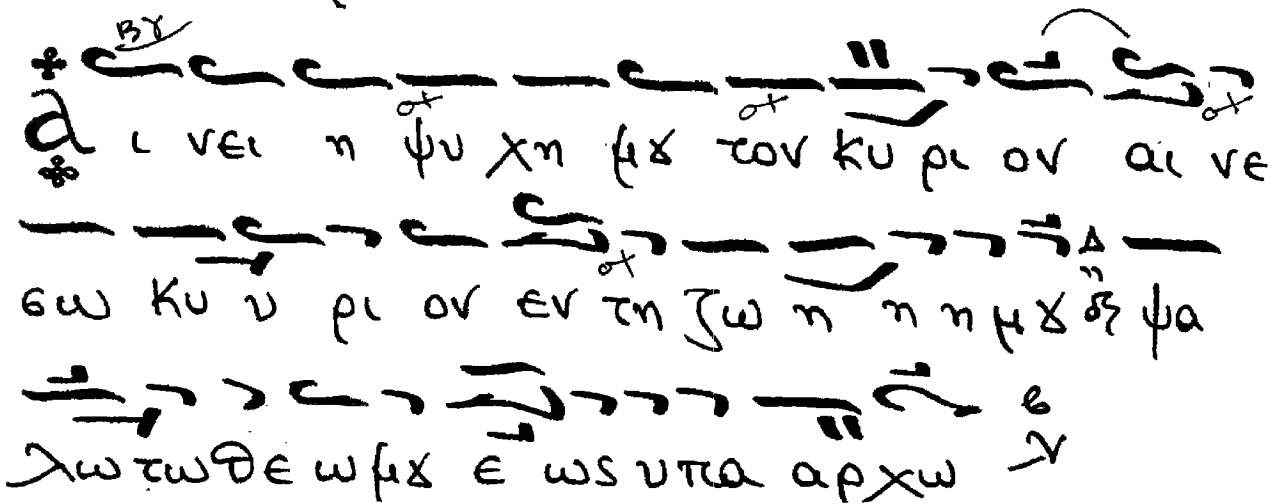 βγ
α ι νει η ψυ χη μȣ τον κυ ρι ον αι νε
σω κυ υ ρι ον εν τη ζω η η η μȣ ψα
λω τω θε ω μȣ ε ως υ πα αρ χω